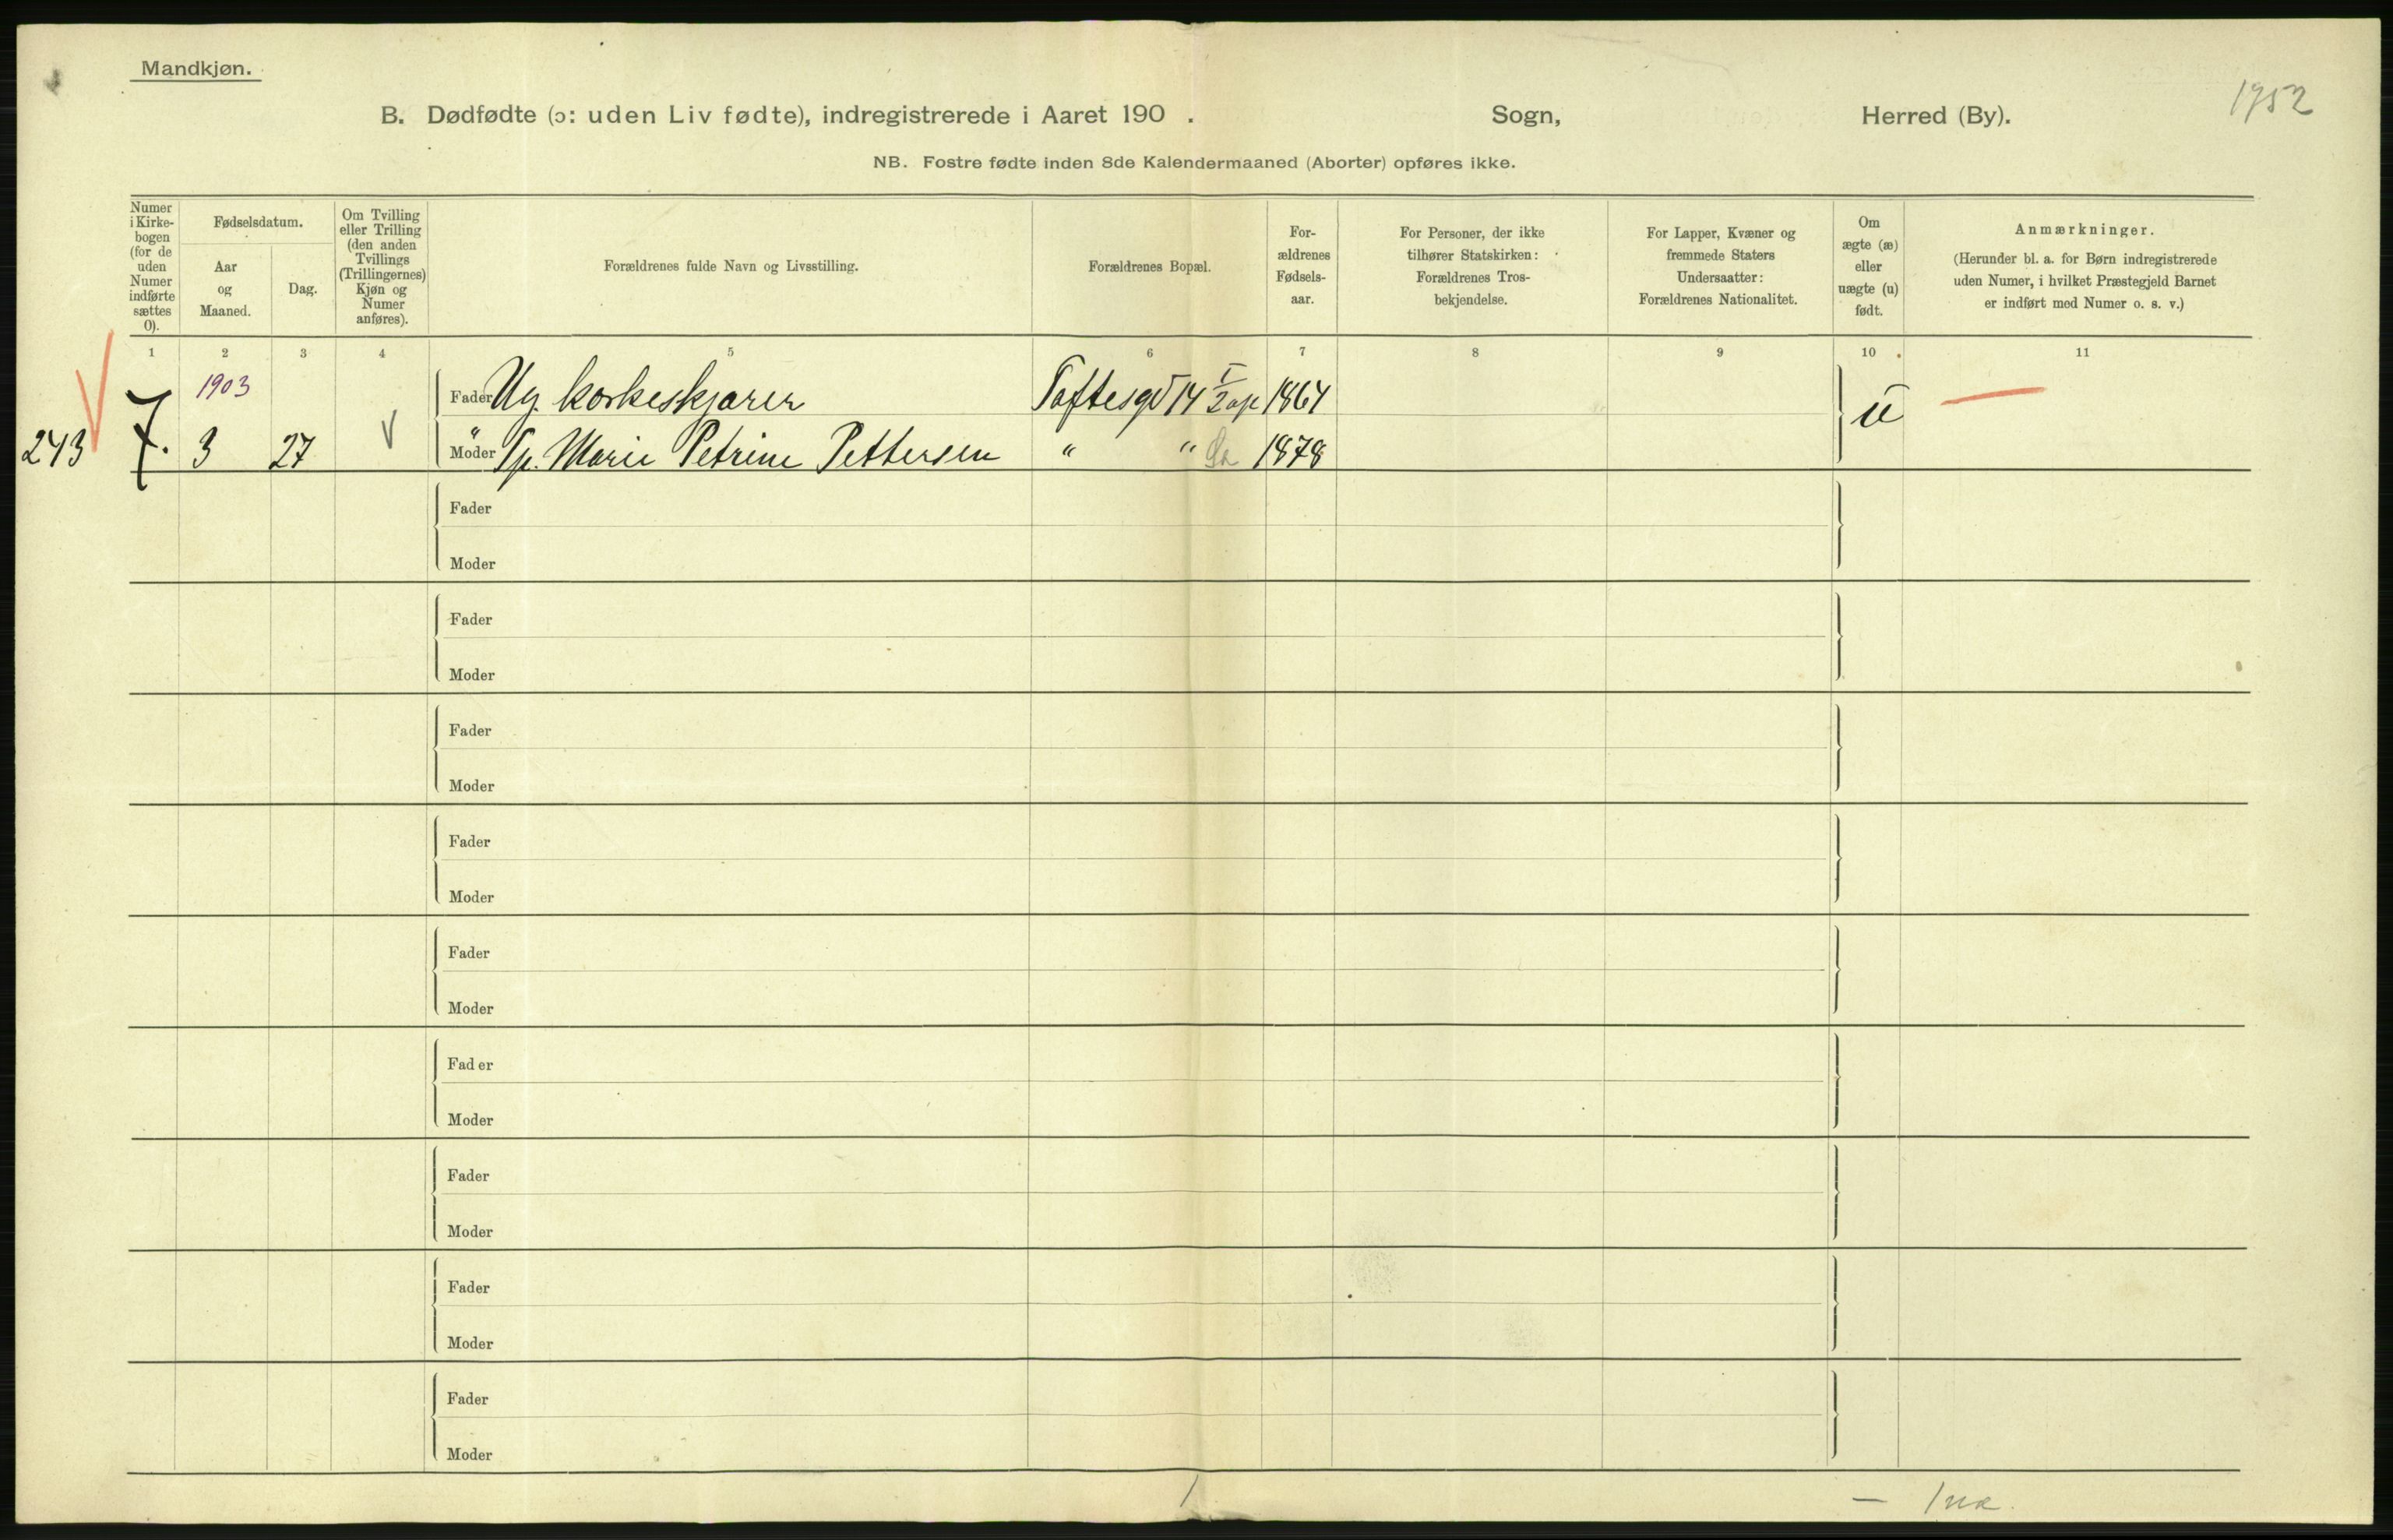 Mandkjøn.
1952
B. Dødfødte (ɔ: uden Liv fødte), indregistrerede i Aaret 190 . Sogn, Herred (By).
NB. Fostre fødte inden 8de Kalendermaaned (Aborter) opføres ikke.
Numer
i Kirke-
bogen
(for de
uden
Numer
indførte
sættes
0).
Fødselsdatum.
Aar
og
Maaned.
Dag.
Om Tvilling
eller Trilling
(den anden
Tvillings
(Trillingernes)
Kjøn og
Numer
anføres).
Forældrenes fulde Navn og Livsstilling.
Forældrenes Bopæl.
For-
ældrenes
Fødsels-
aar.
For Personer, der ikke
tilhører Statskirken:
Forældrenes Tros-
bekjendelse.
For Lapper, Kvæner og
fremmede Staters
Undersaatter:
Forældrenes Nationalitet.
Om
ægte (æ)
eller
uægte (u)
født.
Anmærkninger.
(Herunder bl. a. for Børn indregistrerede
uden Numer, i hvilket Præstegjeld Barnet
er indført med Numer o. s. v.)
1 2 3 4 5 6 7 8 9 10 11
1903
Fader Ug. korkeskjærer Toftesgd 14 1864
u
243 7. 3 27 Moder Marie Petrine Pettersen " " 1878
Fader
Moder
Fader
Moder
Fader
Moder
Fader
Moder
Fader
Moder
Fader
Moder
Fader
Moder
Fader
Moder
Fader
Moder
1 —